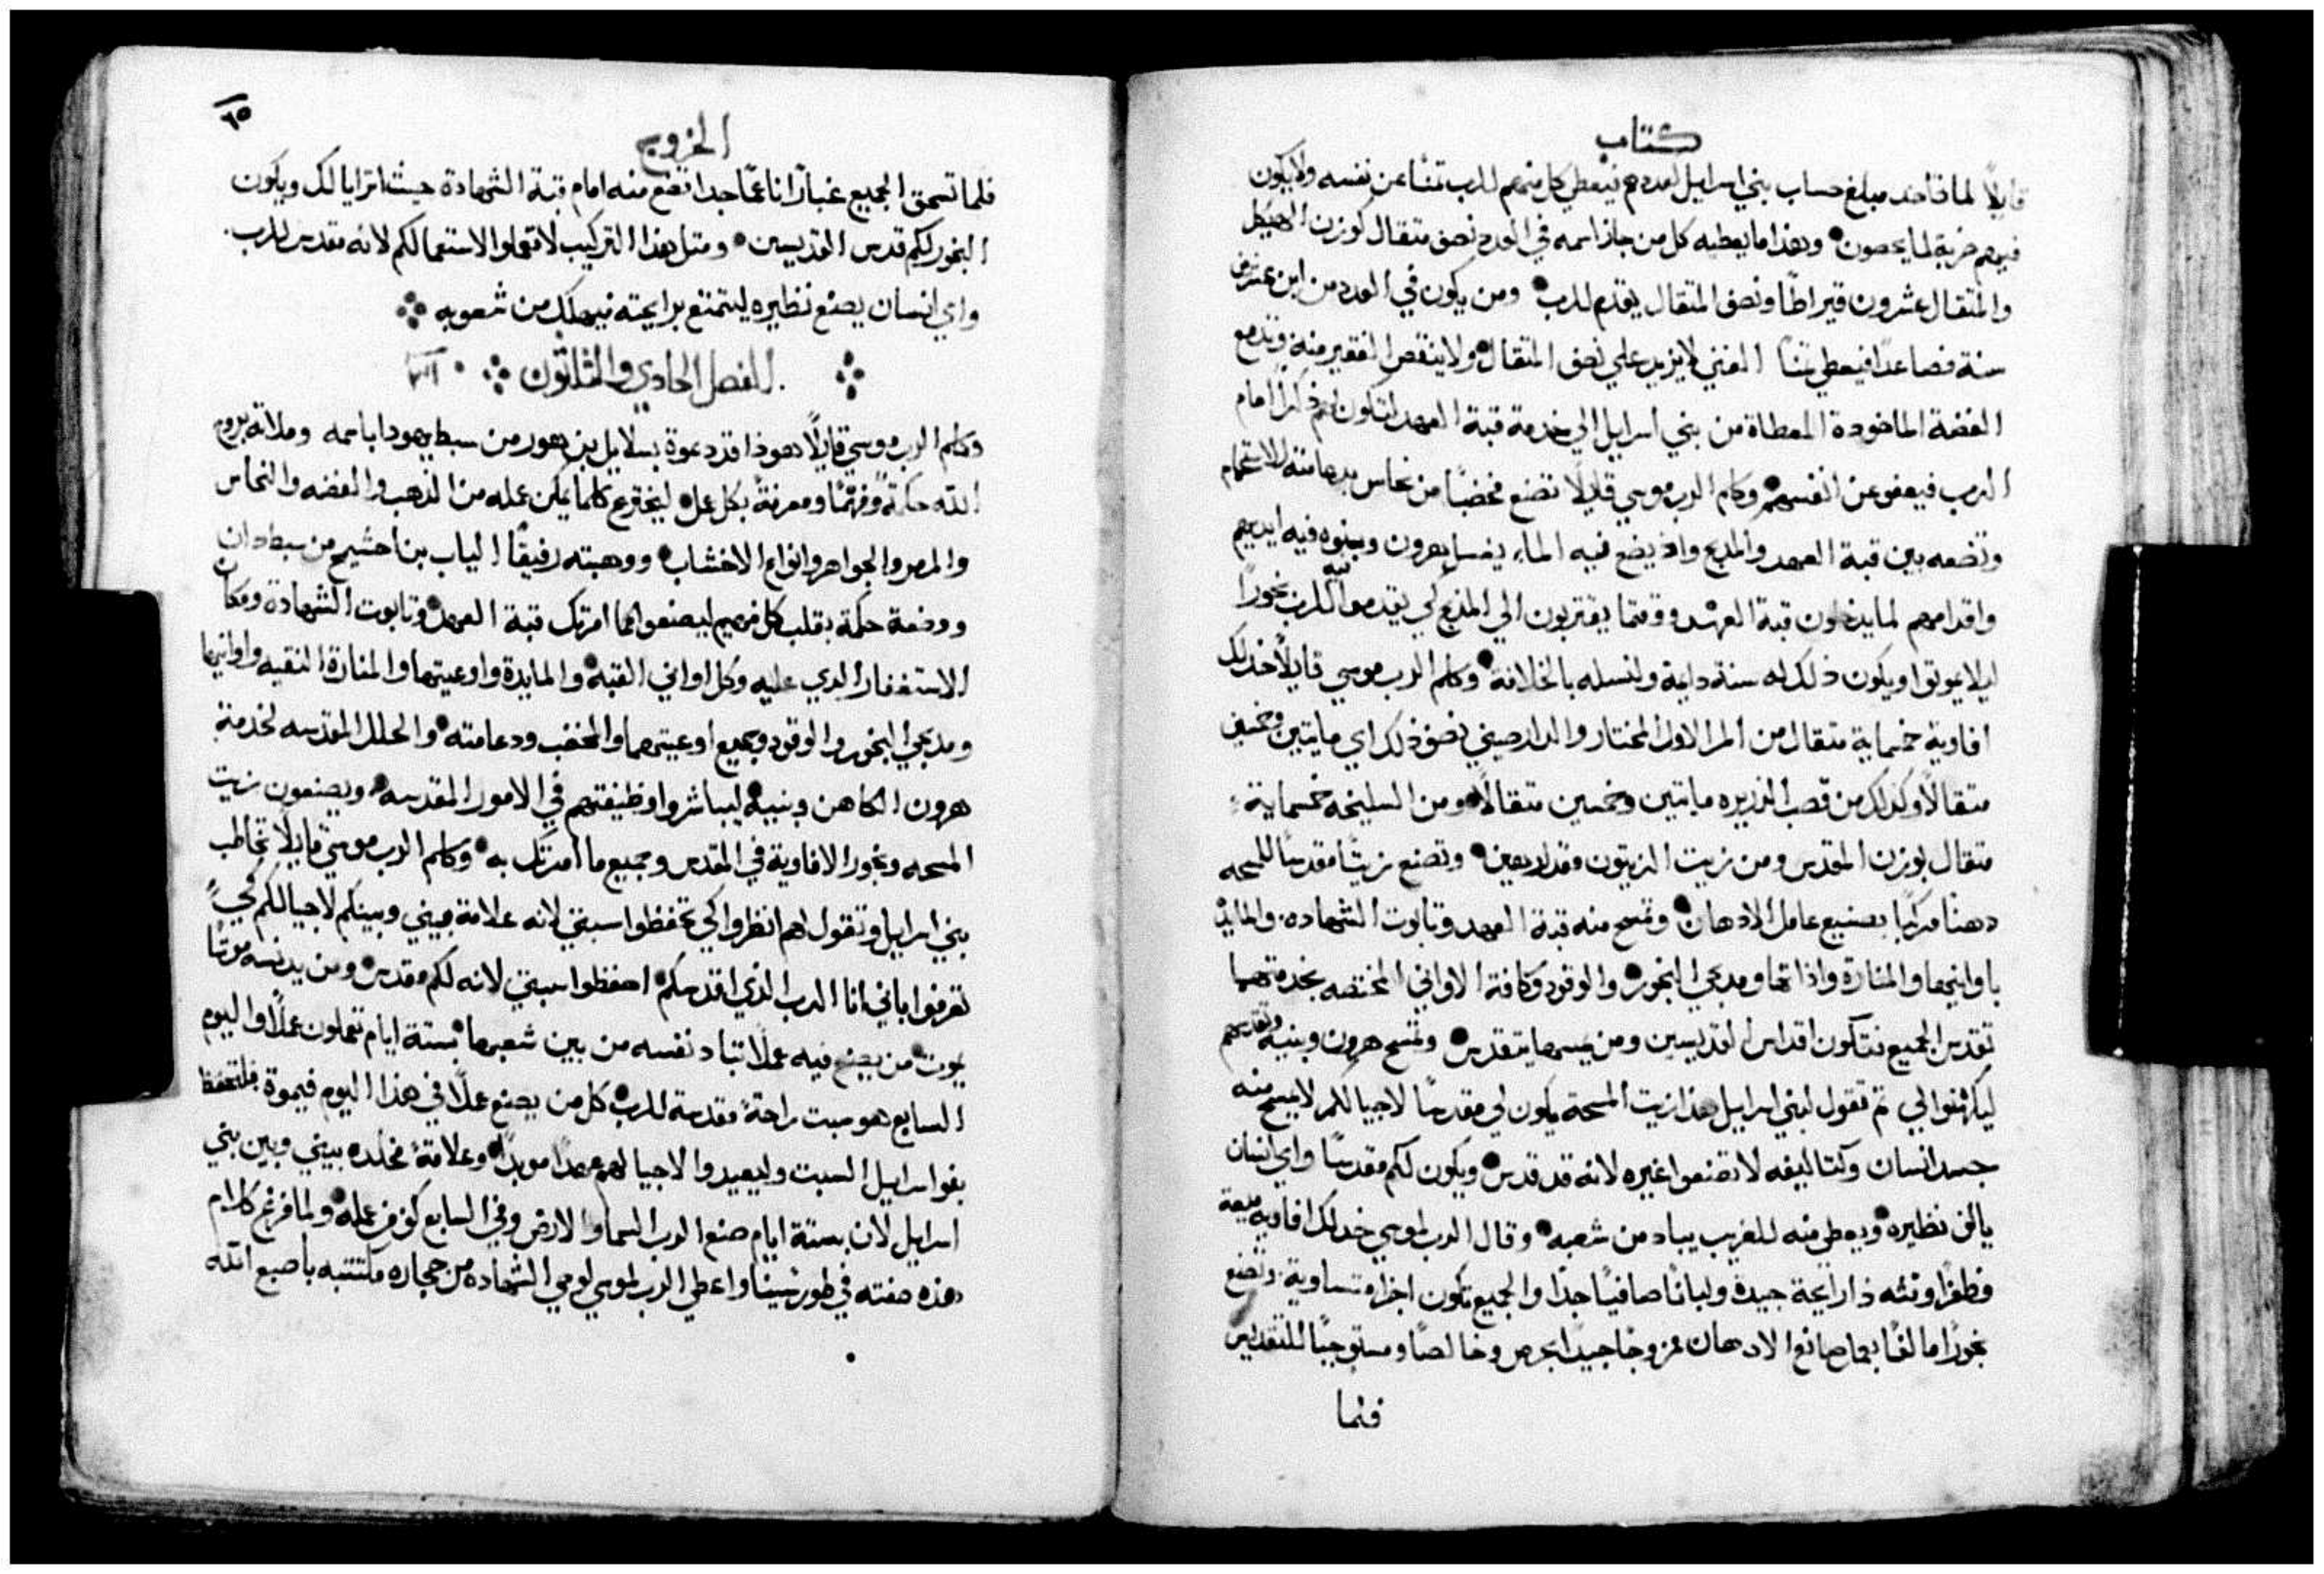 كتاب
قايلًا لما تاخد مبلغ حساب بني اسرايل لعددهم فيعطي كل منهم للرب تمنًا عن نفسه ولا يكون
فيهم ضربة لما يحصون وهذا ما يعطيه كل من جاز اسمه في العدد نصف متقال كوزن الهيكل
والمتقال عشرون قيراطًا ونصف المتقال يقدم للرب ومن يكون في العدد من ابن عشرين
سنة فصاعدًا فيعطي تمنًا الغني لا يزيد علي نصف المتقال ولا ينقص الفقير منه وتدفع
الفضة الماخودة المعطاة من بني اسرايل الي خدمة قبة العهد لتكون لهم ذكرًا امام
الرب فيعفو عن انفسهم وكلم الرب موسي قايلًا تصنع مخضبًا من نحاس بدعامته للاستحمام
وتضعه بين قبة العهد والمدبح واذ يضع فيه الماء يغسل هرون وبنوه فيه ايديهم
واقدامهم لما يدخلون قبة العهد ووقتما يقتربون الي المدبح كي يقدموا فيه للرب بخورًا
ليلا يموتوا ويكون ذلك له سنة دايمة ولنسله بالخلافة وكلم الرب موسي قايلًا خد لك
افاوية خمسماية متقال من المر الاول المختار والدارصيني نصف ذلك اي مايتين وخمسين
متقالًا وكدلك من قصب الذريره مايتين وخمسين متقالًا ومن السليخه خمسماية
متقال بوزن المقدس ومن زيت الزيتون مقدار هين وتصنع زيتًا مقدسًا للمسحه
دهنًا مركبًا بصنيع عامل الادهان وتمسح منه قبة العهد وتابوت الشهاده والمايدة
باوانيها والمنارة واداتها ومدبحي البخور والوقود وكافة الاواني المختصه بخدمتهما
تقدس الجميع فتكون اقداس القديسين ومن يمسها يتقدس وتمسح هرون وبنيه وتقدسهم
ليكهنوا لي تم تقول لبني اسرايل هذا زيت المسحة يكون لي مقدسًا لاجيالكم لا يمسح منه
جسد انسان وكتاليفه لا تصنعوا غيره لانه قد قدس ويكون لكم مقدسًا واي انسان
يالف نظيره ويعطي منه للغريب يباد من شعبه وقال الرب لموسي خد لك افاويه ميعة
وظفرًا وقنه ذا رايحة جيدة ولبانًا صافيًا جدًا والجميع تكون اجزا متساوية وتصنع
بخورًا مالفًا بعمل صانع الادهان ممزوجًا جيدًا بحرص وخالصًا ومستوجبًا للتقديس
فلما
٦٥
الخروج
فلما تسحق الجميع غبارًا ناعمًا جدا تضع منه امام قبة الشهادة حيث اترايا لك ويكون
البخور لكم قدس القديسين ومتل هذا التركيب لا تعملوا لاستعمالكم لانه مقدس للرب
واي انسان يصنع نظيره ليتمتع برايحته فيهلك من شعوبه
الفصل الحادي والثلاثون
وكلم الرب موسي قايلًا هوذا قد دعوة بسلايل بن هور من سبط يهودا باسمه وملاته بروح
الله حكمةً وفهمًا ومعرفةً بكل عمل ليخترع كلما يمكن عمله من الدهب والفضه والنحاس
والمرمر والجواهر وانواع الاخشاب ووهبته رفيقًا الياب بن احشيمخ من سبط دان
ووضعة حكمة بقلب كل فهيم ليصنعوا كلما امرتك قبة العهد وتابوت الشهادة ومكان
الاستغفار الدي عليه وكل اواني القبه والمايدة واوعيتها والمنارة النقيه واوانيها
ومدبحي البخور والوقود وجميع اوعيتهما والمخضب ودعامته والحلل المقدسه لخدمة
هرون الكاهن وبنيه ليباشروا وظيفتهم في الامور المقدسه ويصنعون زيت
المسحه وبخور الافاوية في المقدس وجميع ما امرتك به وكلم الرب موسي قايلًا تخاطب
بني اسرايل وتقول لهم انظروا كي تحفظوا سبتي لانه علامة بيني وبينكم لاجيالكم كي
تعرفوا باني انا الرب الذي اقدسكم احفظوا سبتي لانه لكم مقدس ومن يدنسه موتًا
يموت من يصنع فيه عملًا تباد نفسه من بين شعبها بستة ايام تعملون عملًا واليوم
السابع هو سبت راحةً مقدسة للرب كل من يصنع عملًا في هذا اليوم فيموة فلتحفظ
بنو اسرايل السبت وليعيدوا لاجيالهم عهدًا موبدًا وعلامةً مخلده بيني وبين بني
اسرايل لان بستة ايام صنع الرب السما والارض وفي السابع كف من عمله ولما فرغ كلام
هذه صفته في طور سينا واعطي الرب لموسي لوحي الشهاده من حجاره مكتتبه باصبع الله